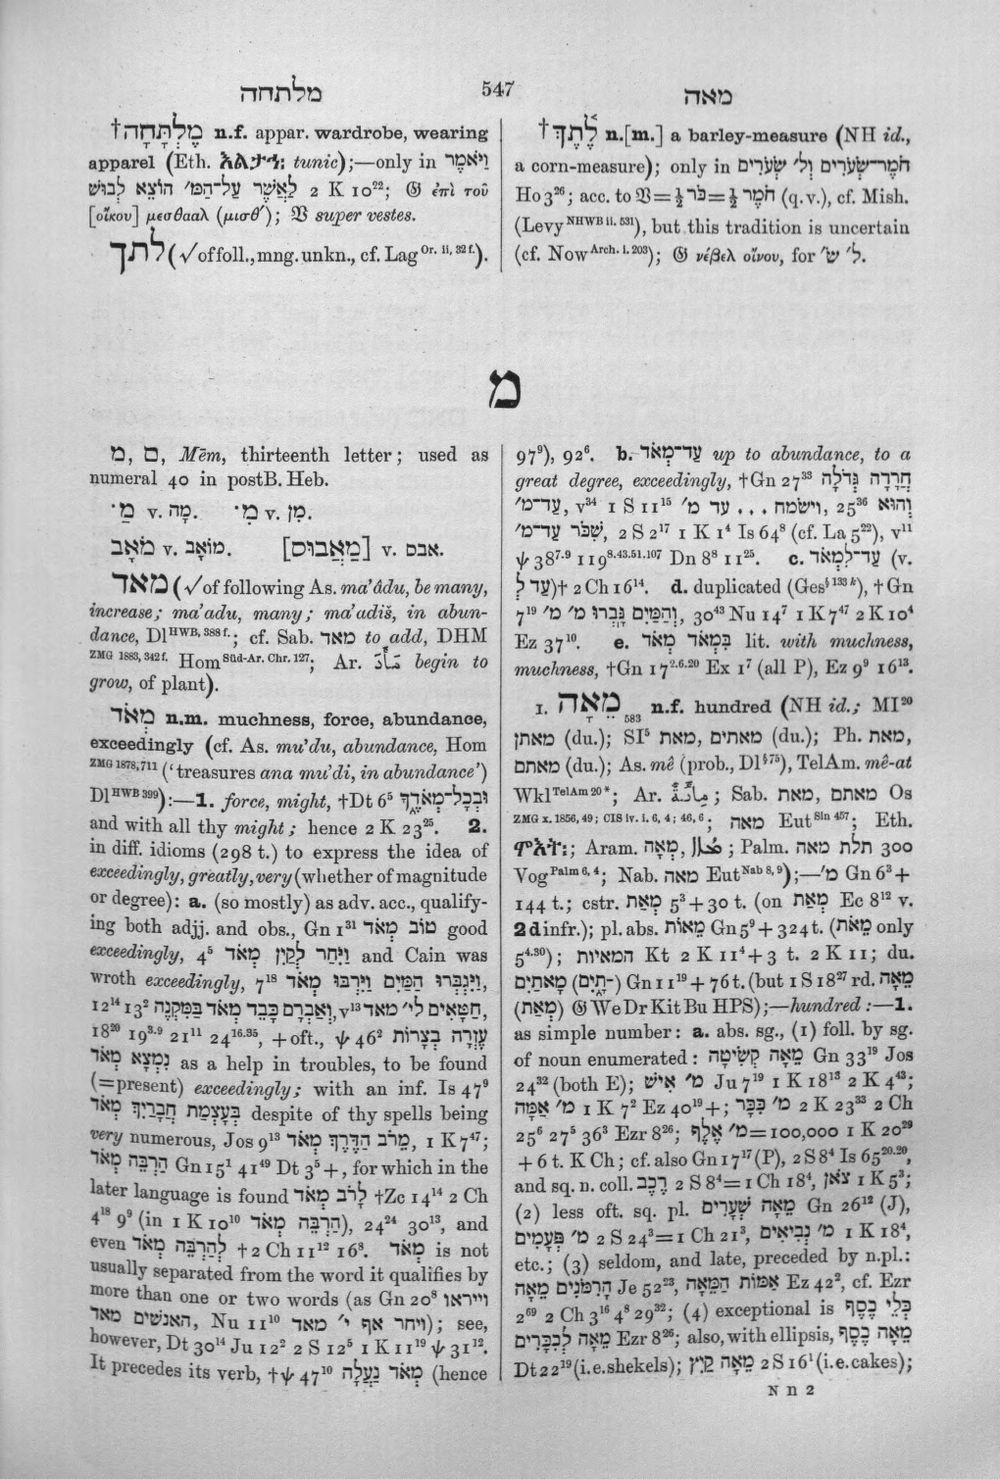 מלתחה
547
מאה
†מֶלְתָּחָה n.f. appar. wardrobe, wearing
apparel (Eth. tunic);—only in וַיֹּאמֶר
לַאֲשֶׁר עַל־הַמּ׳ הוֹצֵא לְבוּשׁ 2 K 10²²; 𝔊 ἐπὶ τοῦ
[οἴκου] μεσθααλ (μισθʹ); 𝔙 super vestes.
לתך (√ of foll., mng. unkn., cf. Lag Or. ii, 32 f.).
†לֶ֫תֶךְ n.[m.] a barley-measure (NH id.,
a corn-measure); only in חֹמֶר־שְׂעֹרִים וְל׳ שְׂעֹרִים
Ho 3²⁶; acc. to 𝔙=½ כֹּר=½ חֹמֶר (q.v.), cf. Mish.
(Levy NHWB ii. 531), but this tradition is uncertain
(cf. Now Arch. i. 203); 𝔊 νέβελ οἴνου, for ל׳ שׂ׳.
מ
מ, ם, Mēm, thirteenth letter; used as
numeral 40 in postB. Heb.
מַ ּ v. מָה. מִ ּ v. מִן.
מֹאָב v. מוֹאָב. [מַאֲבוּס] v. אבס.
מאד (√ of following As. ma’âdu, be many,
increase; ma’adu, many; ma’adiš, in abun-
dance, Dl HWB, 388 f.; cf. Sab. מאד to add, DHM
ZMG 1883, 342 f. Hom Süd-Ar. Chr. 127; Ar. begin to
grow, of plant).
מְאֹד n.m. muchness, force, abundance,
exceedingly (cf. As. mu’du, abundance, Hom
ZMG 1878, 711 (‘treasures ana mu’di, in abundance’)
Dl HWB 399):—1. force, might, †Dt 6⁵ וּבְכָל־מְאֹדֶךָ
and with all thy might; hence 2 K 23²⁵. 2.
in diff. idioms (298 t.) to express the idea of
exceedingly, greatly, very (whether of magnitude
or degree): a. (so mostly) as adv. acc., qualify-
ing both adjj. and obs., Gn 1³¹ טוֹב מְאֹד good
exceedingly, 4⁵ וַיִּחַר לְקַיִן מְאֹד and Cain was
wroth exceedingly, 7¹⁸ וַיִּגְבְּרוּ הַמַּיִם וַיִּרְבּוּ מְאֹד,
12¹⁴ 13² וְאַבְרָם כָּבֵד מְאֹד בַּמִּקְנֶה, v¹³ חַטָּאִים לי׳ מאד,
18²⁰ 19³·⁹ 21¹¹ 24¹⁶·³⁵, + oft., ψ 46² עֶזְרָה בְצָרוֹת
נִמְצָא מְאֹד as a help in troubles, to be found
(=present) exceedingly; with an inf. Is 47⁹
בְּעָצְמַת חֲבָרַיִךְ מְאֹד despite of thy spells being
very numerous, Jos 9¹³ מֵרֹב הַדֶּרֶךְ מְאֹד, 1 K 7⁴⁷;
הַרְבֵּה מְאֹד Gn 15¹ 41⁴⁹ Dt 3⁵ +, for which in the
later language is found לָרֹב מְאֹד †Zc 14¹⁴ 2 Ch
4¹⁸ 9⁹ (in 1 K 10¹⁰ הַרְבֵּה מְאֹד), 24²⁴ 30¹³, and
even לְהַרְבֵּה מְאֹד †2 Ch 11¹² 16⁸. מְאֹד is not
usually separated from the word it qualifies by
more than one or two words (as Gn 20⁸ וייראו
האנשים מאד, Nu 11¹⁰ ויחר אף י׳ מאד); see,
however, Dt 30¹⁴ Ju 12² 2 S 12⁵ 1 K 11¹⁹ ψ 31¹².
It precedes its verb, †ψ 47¹⁰ מְאֹד נַעֲלָה (hence
97⁹), 92⁶. b. עַד־מְאֹד up to abundance, to a
great degree, exceedingly, †Gn 27³³ חֲרָדָה גְּדֹלָה
עַד־מ׳, v³⁴ 1 S 11¹⁵ וישמח ... עד מ׳, 25³⁶ וְהוּא
שִׁכֹּר עַד־מ׳, 2 S 2¹⁷ 1 K 1⁴ Is 64⁸ (cf. La 5²²), v¹¹
ψ 38⁷·⁹ 119⁸·⁴³·⁵¹·¹⁰⁷ Dn 8⁸ 11²⁵. c. עַד־לִמְאֹד (v.
עַד לְ)† 2 Ch 16¹⁴. d. duplicated (Ges § 133 k), †Gn
7¹⁹ וְהַמַּיִם גָּבְרוּ מ׳ מ׳, 30⁴³ Nu 14⁷ 1 K 7⁴⁷ 2 K 10⁴
Ez 37¹⁰. e. בִּמְאֹד מְאֹד lit. with muchness,
muchness, †Gn 17²·⁶·²⁰ Ex 1⁷ (all P), Ez 9⁹ 16¹³.
I. מֵאָה 583 n.f. hundred (NH id.; MI²⁰
מאתן (du.); SI⁵ מאת, מאתים (du.); Ph. מאת,
מאתם (du.); As. mê (prob., Dl § 75), TelAm. mê-at
Wkl TelAm 20*; Ar. ; Sab. מאת, מאתם Os
ZMG x. 1856, 49; CIS iv. i. 6, 4; 46, 6; מאה Eut Sin 457; Eth.
; Aram. מְאָה, ; Palm. תלת מאה 300
Vog Palm 6, 4; Nab. מאה Eut Nab 8, 9);—מ׳ Gn 6³ +
144 t.; cstr. מְאַת 5³ + 30 t. (on מְאַת Ec 8¹² v.
2 d infr.); pl. abs. מֵאוֹת Gn 5⁹ + 324 t. (מֵאֹת only
5⁴·³⁰); המאיות Kt 2 K 11⁴ + 3 t. 2 K 11; du.
מָאתַיִם (־תָיִם) Gn 11¹⁹ + 76 t. (but 1 S 18²⁷ rd. מֵאָה
(מְאַת) 𝔊 We Dr Kit Bu HPS);—hundred:—1.
as simple number: a. abs. sg., (1) foll. by sg.
of noun enumerated: מֵאָה קְשִׂיטָה Gn 33¹⁹ Jos
24³² (both E); מ׳ אִישׁ Ju 7¹⁹ 1 K 18¹³ 2 K 4⁴³;
מ׳ אַמָּה 1 K 7² Ez 40¹⁹ +; מ׳ כִּכָּר 2 K 23³³ 2 Ch
25⁶ 27⁵ 36³ Ezr 8²⁶; מ׳ אֶלֶף=100,000 1 K 20²⁹
+ 6 t. K Ch; cf. also Gn 17¹⁷ (P), 2 S 8⁴ Is 65²⁰·²⁰,
and sq. n. coll. רֶכֶב 2 S 8⁴=1 Ch 18⁴, צֹאן 1 K 5³;
(2) less oft. sq. pl. מֵאָה שְׁעָרִים Gn 26¹² (J),
מ׳ פְּעָמִים 2 S 24³=1 Ch 21³, מ׳ נְבִיאִים 1 K 18⁴,
etc.; (3) seldom, and late, preceded by n.pl.:
הָרִמֹּנִים מֵאָה Je 52²³, אַמּוֹת הַמֵּאָה Ez 42², cf. Ezr
2⁶⁹ 2 Ch 3¹⁶ 4⁸ 29³²; (4) exceptional is כְּלֵי כֶסֶף
מֵאָה לְכִכָּרִים Ezr 8²⁶; also, with ellipsis, מֵאָה כֶסֶף
Dt 22¹⁹ (i.e. shekels); מֵאָה קַיִץ 2 S 16¹ (i.e. cakes);
N n 2